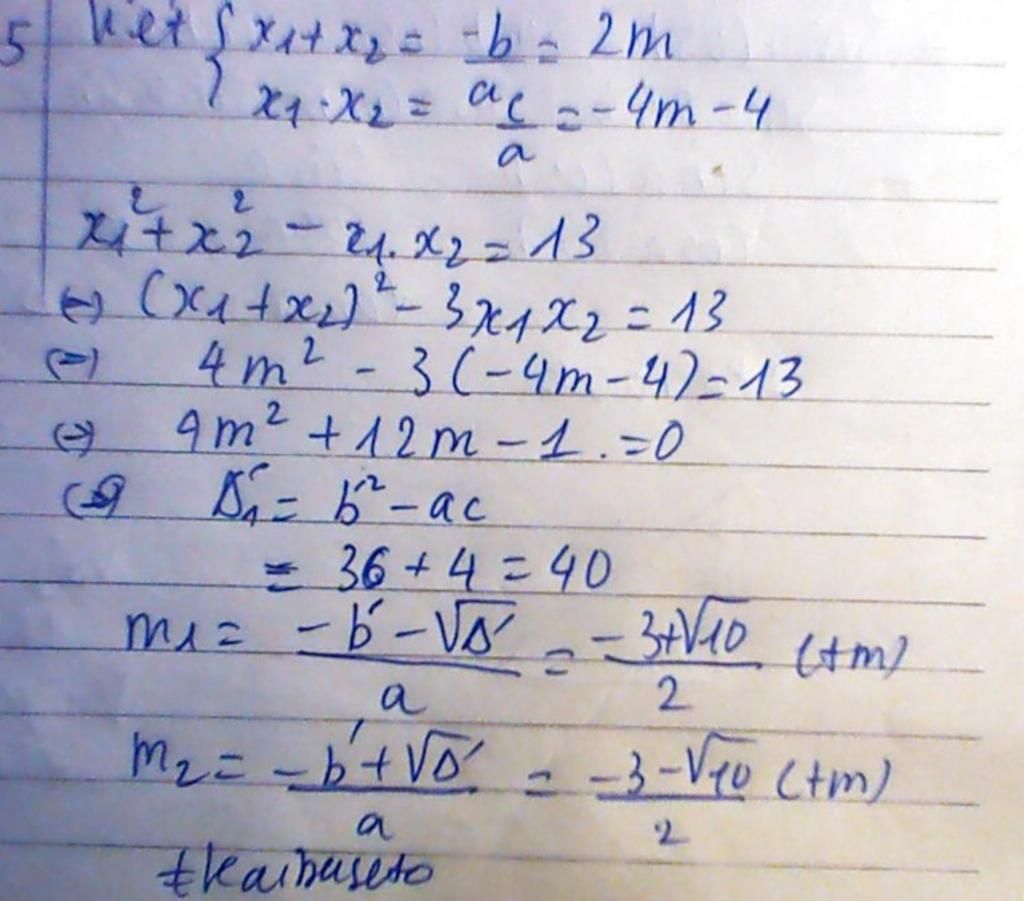 5 Viet { x1 + x2 = -b/a = 2m
x1 . x2 = c/a = -4m - 4
x1² + x2² - x1. x2 = 13
(=) (x1 + x2)² - 3x1x2 = 13
(=) 4m² - 3(-4m - 4) = 13
(=) 4m² + 12m - 1 . = 0
Δ'1 = b'² - ac
= 36 + 4 = 40
m1 = (-b' - √Δ')/a = (-3+√10)/2 (tm)
m2 = (-b' + √Δ')/a = (-3-√10)/2 (tm)